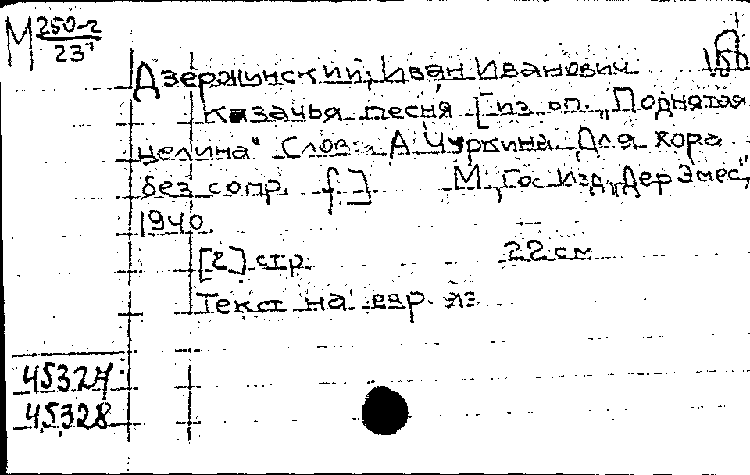 М 250-2
23
Дзержинский, Иван Иванович
Казачья песня [из оп. „Поднятая
целина" Слова А. Чуркина Для хора
без сопр. f.] М., Гос. Изд. „Дер Эмес",
1940.
[2] стр. 22 см
Текст на евр. яз
45327
45328